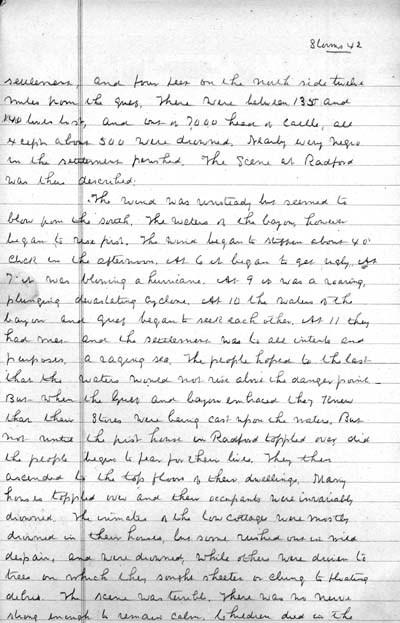 Storms 42
settlement, and four feet on the north side twelve
miles from the gulf. There were between 135 and
140 lives lost, and out of 7000 head of cattle, all
except about 500 were drowned. Nearly every negro
in the settlement perished. The Scene at Radford
was thus described:
"The wind was unsteady but seemed to
blow from the south. The waters of the bayou, however
began to rise first. The wind began to stiffen about 4 o'
clock in the afternoon. At 6 it began to get ugly, at
7 it was blowing a hurricane. At 9 it was a roaring,
plunging devastating cyclone. At 10 the waters of the
bayou and gulf began to seek each other. At 11 they
had met and the settlement was to all intents and
purposes, a raging sea. The people hoped to the last
that the waters would not rise above the danger point -
But when the gulf and bayou embraced they knew
that their stores were being cast upon the waters. But
not until the first house in Radford toppled over did
the people begin to fear for their lives. They then
ascended to the top floors of their dwellings. Many
houses toppled over and their occupants were invariably
drowned. The inmates of the low cottages were mostly
drowned in their houses, but some rushed out in wild
despair, and were drowned, while others were driven to
trees on which they sought shelter or clung to floating
debris. The scene was terrible. There was no nerve
strong enough to remain calm. Children died in the